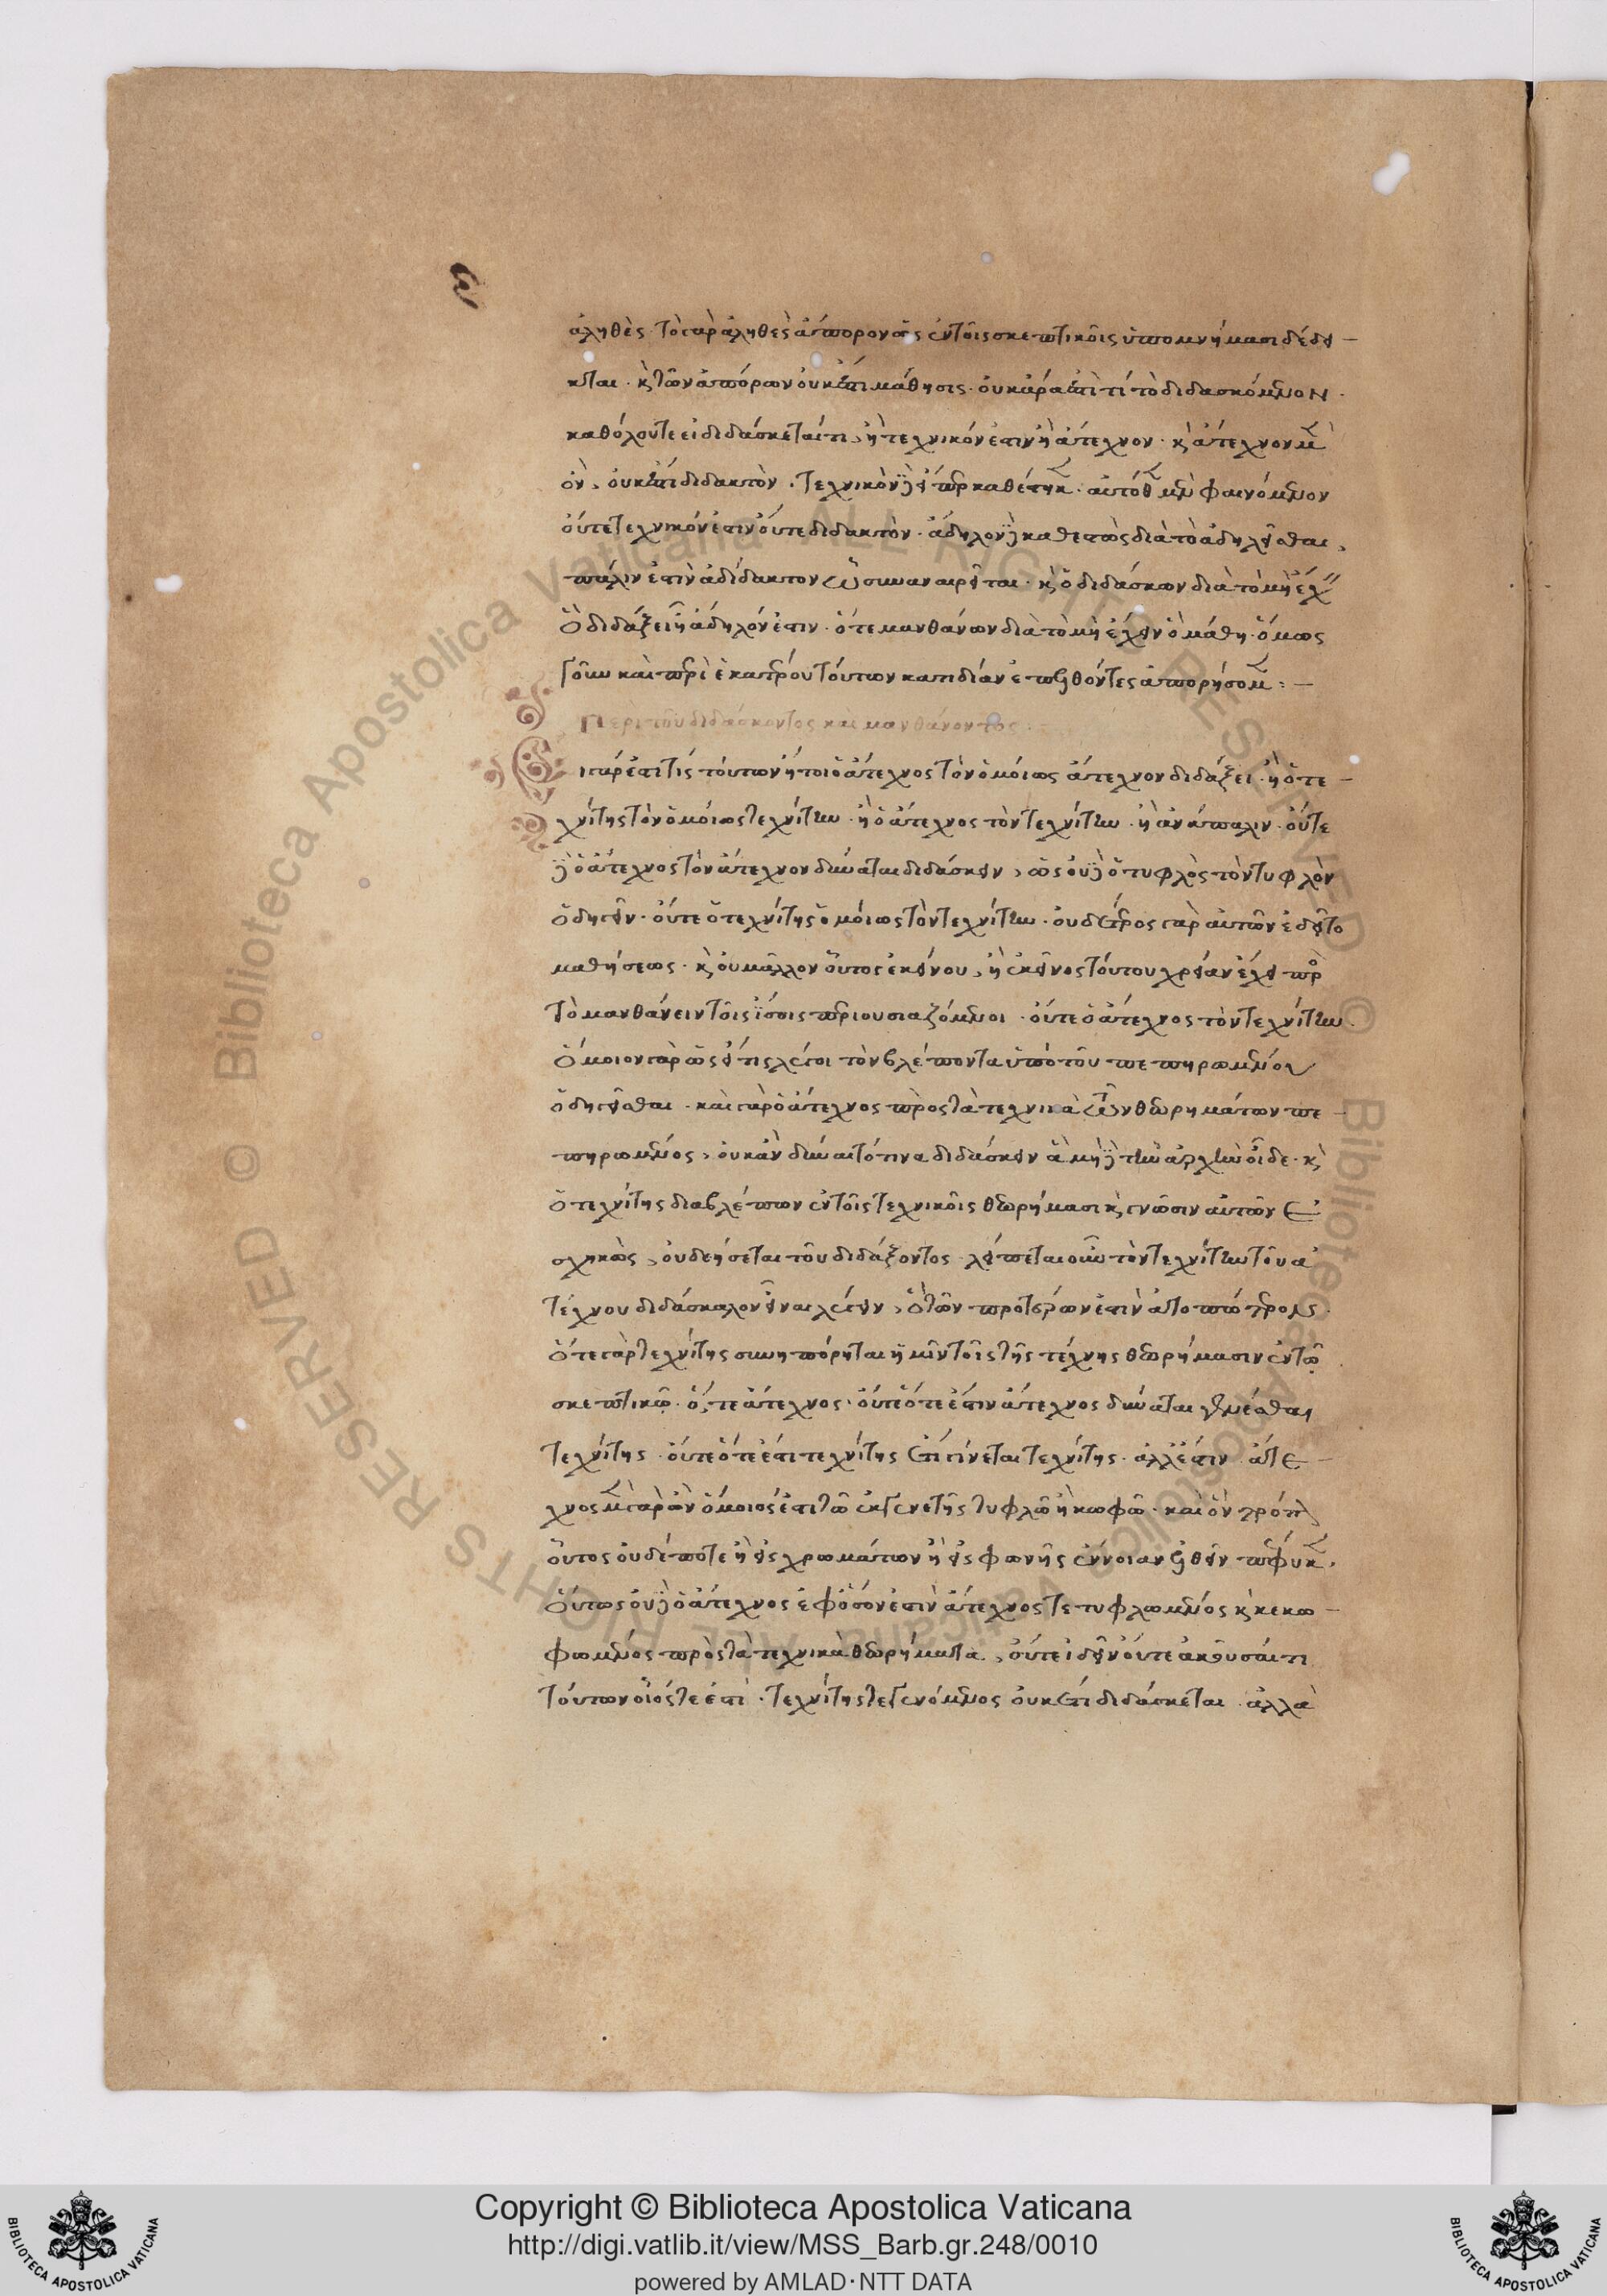 ω
ἀληθὲς· τὸ γὰρ ἀληθὲς ἄπορον ὡς ἐν τοῖς σκεπτικοῖς ὑπομνήμασι δέδει-
κται· κ τῶν ἀπόρων οὐκ ἔστι μάθησις· οὐκ ἄρα ἐστὶ τί τὸ διδασκόμενον·
καθόλου τε εἰ διδάσκεταί τι, ἢ τεχνικόν ἐστιν ἢ ἄτεχνον· κ ἄτεχνον μὲν
ὂν, οὐκ ἔστι διδακτὸν· τεχνικὸν δὲ εἴπερ καθέστηκεν· αὐτόθεν μὲν φαινόμενον
οὔτε τεχνικόν ἐστιν οὔτε διδακτὸν· ἄδηλον δὲ καθεστὼς διὰ τὸ ἀδηλεῖσθαι,
πάλιν ἐστὶν ἀδίδακτον ὧ συναναιρεῖται· κ ὁ διδάσκων διὰ τὸ μὴ ἔχειν
ὃ διδάξει ἢ ἄδηλόν ἐστιν· ὅ τε μανθάνων διὰ τὸ μὴ ἔχειν ὃ μάθη· ὅμως
γοῦν καὶ περὶ ἑκατέρου τούτων κατ ιδίαν ἐπελθόντες ἀπορήσομεν:-
Περὶ τοῦ διδάσκοντος καὶ μανθάνοντος.
Εἰ γάρ ἐστι τίς τούτων ἤτοι ὁ ἄτεχνος τὸν ὁμοίως ἄτεχνον διδάξει· ἢ ὁ τε-
χνίτης τὸν ὁμοίως τεχνίτην· ἢ ὁ ἄτεχνος τὸν τεχνίτην· ἢ ἀνάπαλιν· οὔτε
δὲ ὁ ἄτεχνος τὸν ἄτεχνον δύναται διδάσκειν, ὡς οὐδὲ ὁ τυφλὸς τὸν τυφλὸν
ὁδηγεῖν· οὔτε ὁ τεχνίτης ὁμοίως τὸν τεχνίτην· οὐδέτερος γὰρ αὐτῶν ἐδεῖτο
μαθήσεως· κ οὐ μᾶλλον οὗτος ἐκείνου, ἢ ἐκεῖνος τούτου χρείαν ἔχει πρὸς
τὸ μανθάνειν τοῖς ἴσοις περιουσιαζόμενοι· οὔτε ὁ ἄτεχνος τὸν τεχνίτην·
ὅμοιον γὰρ ὡς εἴ τις λέγοι τὸν βλέποντα ὑπὸ τοῦ πεπηρωμένου
ὁδηγεῖσθαι· καὶ γὰρ ὁ ἄτεχνος πρὸς τὰ τεχνικὰ τῶν θεωρημάτων πε-
πηρωμένος, οὐκ ἂν δύναιτό τινα διδάσκειν ἃ μὴ δὲ τὴν ἀρχὴν οἶδε· κ
ὁ τεχνίτης διαβλέπων ἐν τοῖς τεχνικοῖς θεωρήμασι κ γνῶσιν αὐτῶν ἐ
σχηκὼς, οὐ δεήσεται τοῦ διδάξοντος· λείπεται οὖν τὸν τεχνίτην τοῦ α
τέχνου διδάσκαλον εἶναι λέγειν, ὃ τῶν προτέρων ἐστὶν ἀτοπώτερον·
ὅ τε γὰρ τεχνίτης συνηπόρηται ἡμῖν τοῖς τῆς τέχνης θεωρήμασιν ἐν τῷ
σκεπτικῷ· ὅ, τε ἄτεχνος· οὔτε ὅτε ἐστιν ἄτεχνος δύναται γενέσθαι
τεχνίτης· οὔτε ὅτε ἐστι τεχνίτης ἔτι γίνεται τεχνίτης· ἀλλ ἔστιν· ἄτε-
χνος μὲν γὰρ ὢν ὅμοιός ἐστι τῷ ἐκ γενετῆς τυφλῷ ἢ κωφῷ· καὶ ὃν τρόπον
οὗτος οὐδέποτε ἢ εἰς χρωμάτων ἢ εἰς φωνῆς ἔννοιαν ἐλθεῖν πέφυκεν,
οὕτως οὐδὲ ὁ ἄτεχνος ἐφ ὅσον ἐστὶν ἄτεχνος τετυφλωμένος κ κεκω-
φωμένος πρὸς τὰ τεχνικὰ θεωρήματα, οὔτε ἰδεῖν οὔτε ἀκοῦσαί τι
τούτων οἷός τε ἐστὶ· τεχνίτης τε γενόμενος οὐκ ἔτι διδάσκεται· ἀλλὰ
© Biblioteca Apostolica Vaticana ALL RIGHTS RESERVED
Copyright © Biblioteca Apostolica Vaticana
http://digi.vatlib.it/view/MSS_Barb.gr.248/0010
powered by AMLAD·NTT DATA
BIBLIOTECA APOSTOLICA VATICANA
BIBLIOTECA APOSTOLICA VATICANA